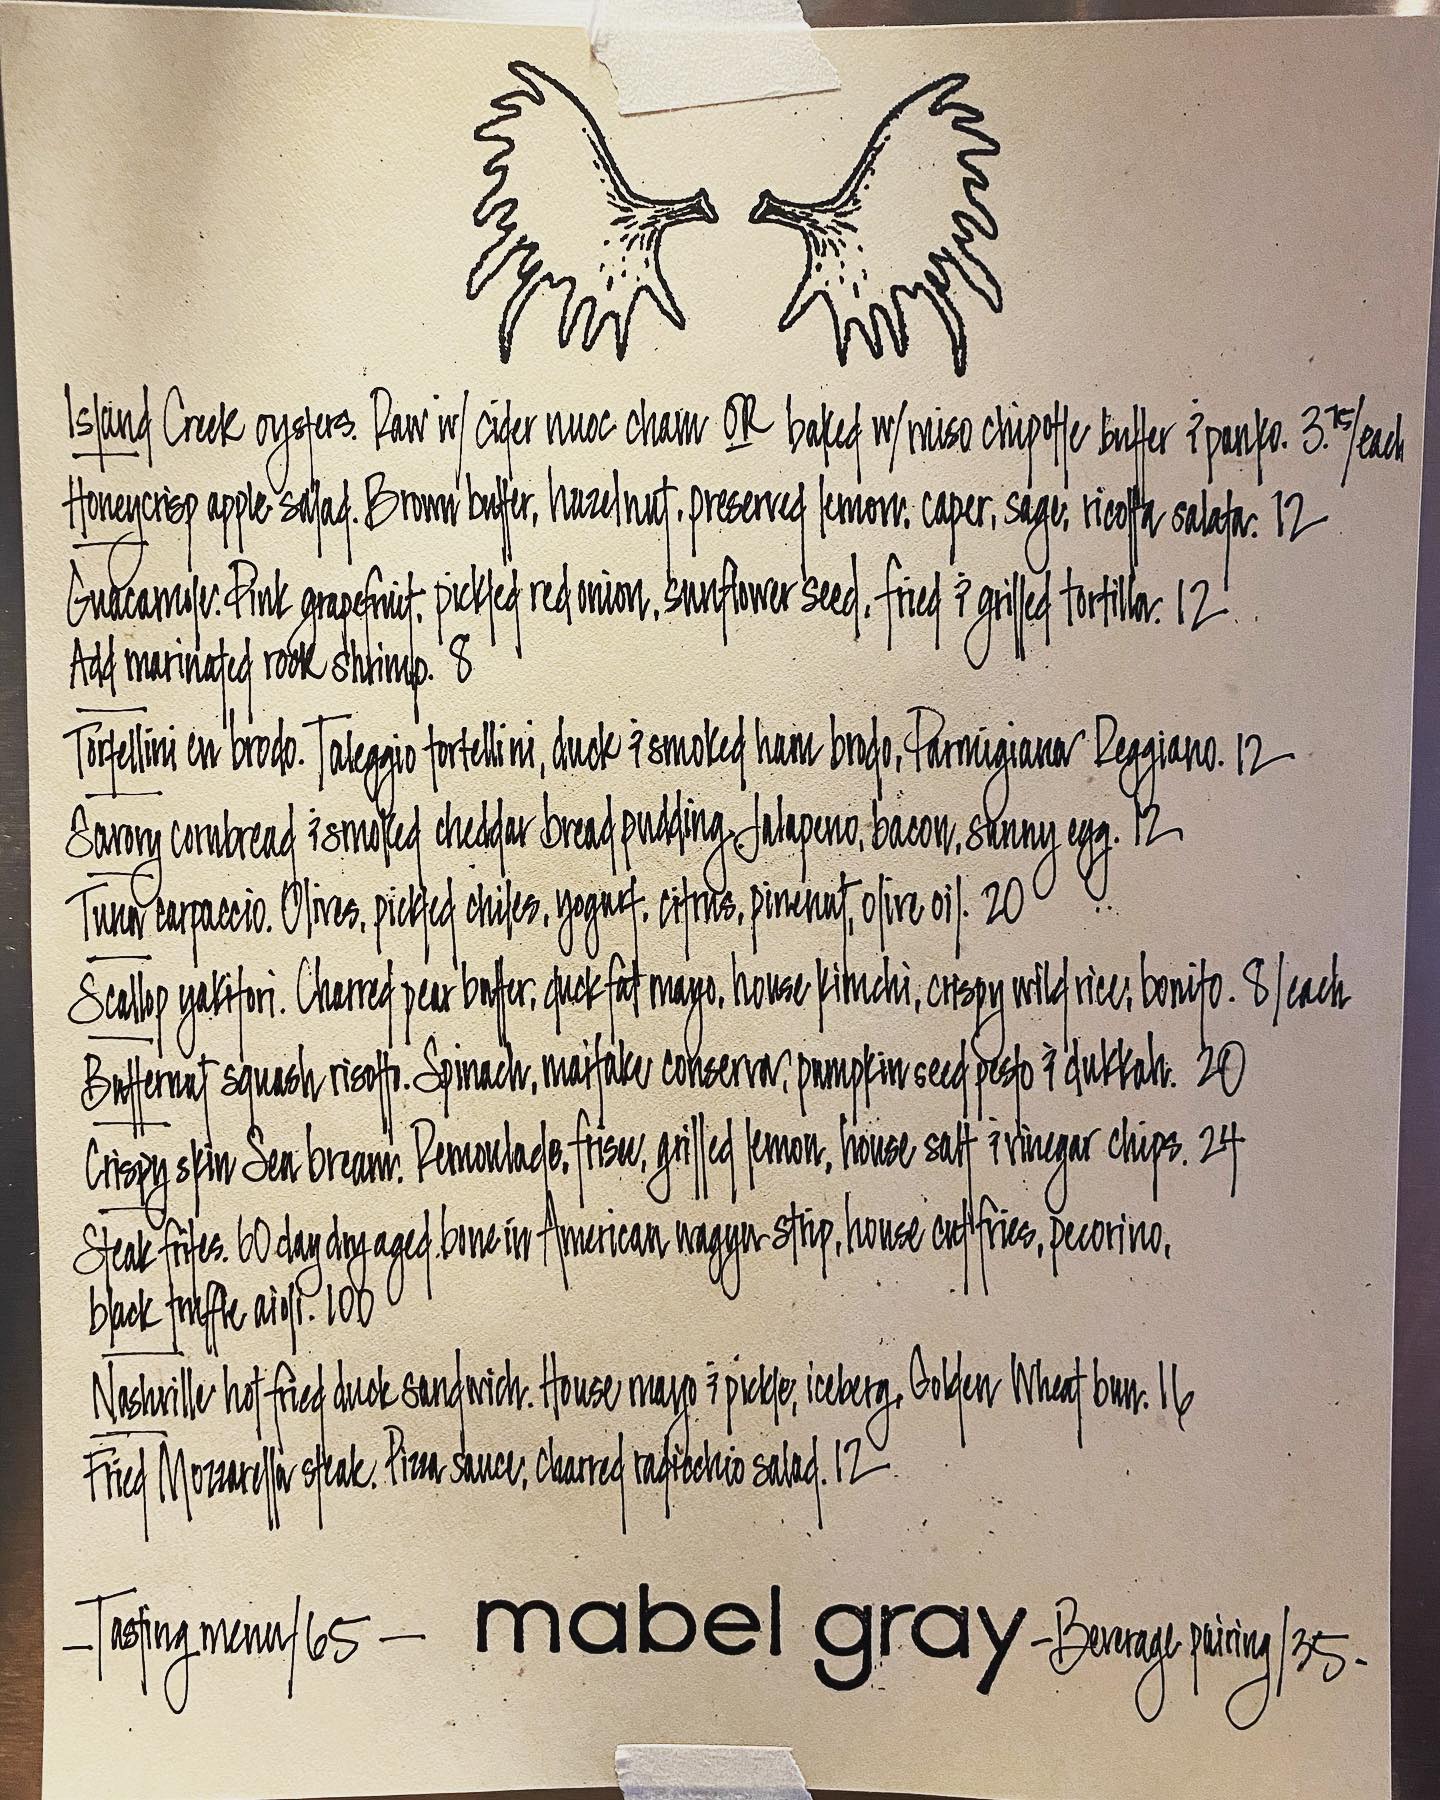 Island Creek oysters. Raw w/ cider nuoc cham OR baked w/ miso chipotle butter & panko. 3.75/each
Honeycrisp apple salad. Brown butter, hazelnut, preserved lemon, caper, sage, ricotta salata. 12
Guacamole. Pink grapefruit, pickled red onion, sunflower seed, fried & grilled tortilla. 12
Add marinated rock shrimp. 8
Tortellini en brodo. Taleggio tortellini, duck & smoked ham brodo, Parmigiana Reggiano. 12
Savory cornbread & smoked cheddar bread pudding. Jalapeno, bacon, sunny egg. 12
Tuna carpaccio. Olives, pickled chiles, yogurt, citrus, pinenut, olive oil. 20
Scallop yakitori. Charred pear butter, duck fat mayo, house kimchi, crispy wild rice, bonito. 8/each
Butternut squash risotto. Spinach, maitake conserva, pumpkin seed pesto & dukkah. 20
Crispy skin Sea bream. Remoulade, frisee, grilled lemon, house salt & vinegar chips. 24
Steak frites. 60 day dry aged bone in American wagyu strip, house cut fries, pecorino,
black truffle aioli. 100
Nashville hot fried duck sandwich. House mayo & pickle, iceberg, Golden Wheat bun. 16
Fried Mozzarella steak. Pizza sauce, charred radicchio salad. 12
- Tasting menu/65 - mabel gray - Beverage pairing/35 -